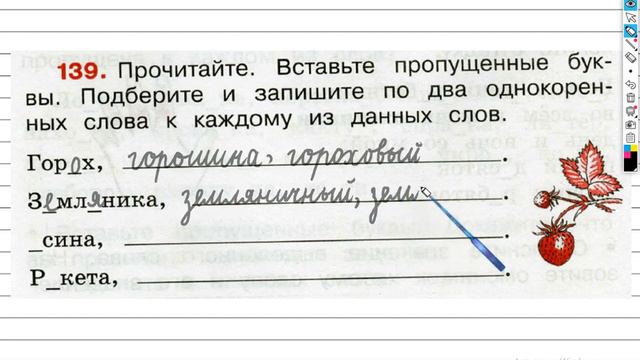 139. Прочитайте. Вставьте пропущенные бук-
вы. Подберите и запишите по два однокорен-
ных слова к каждому из данных слов.
Горох, горошина, гороховый.
Земляника, земляничный, земл
_сина,
Р_кета,